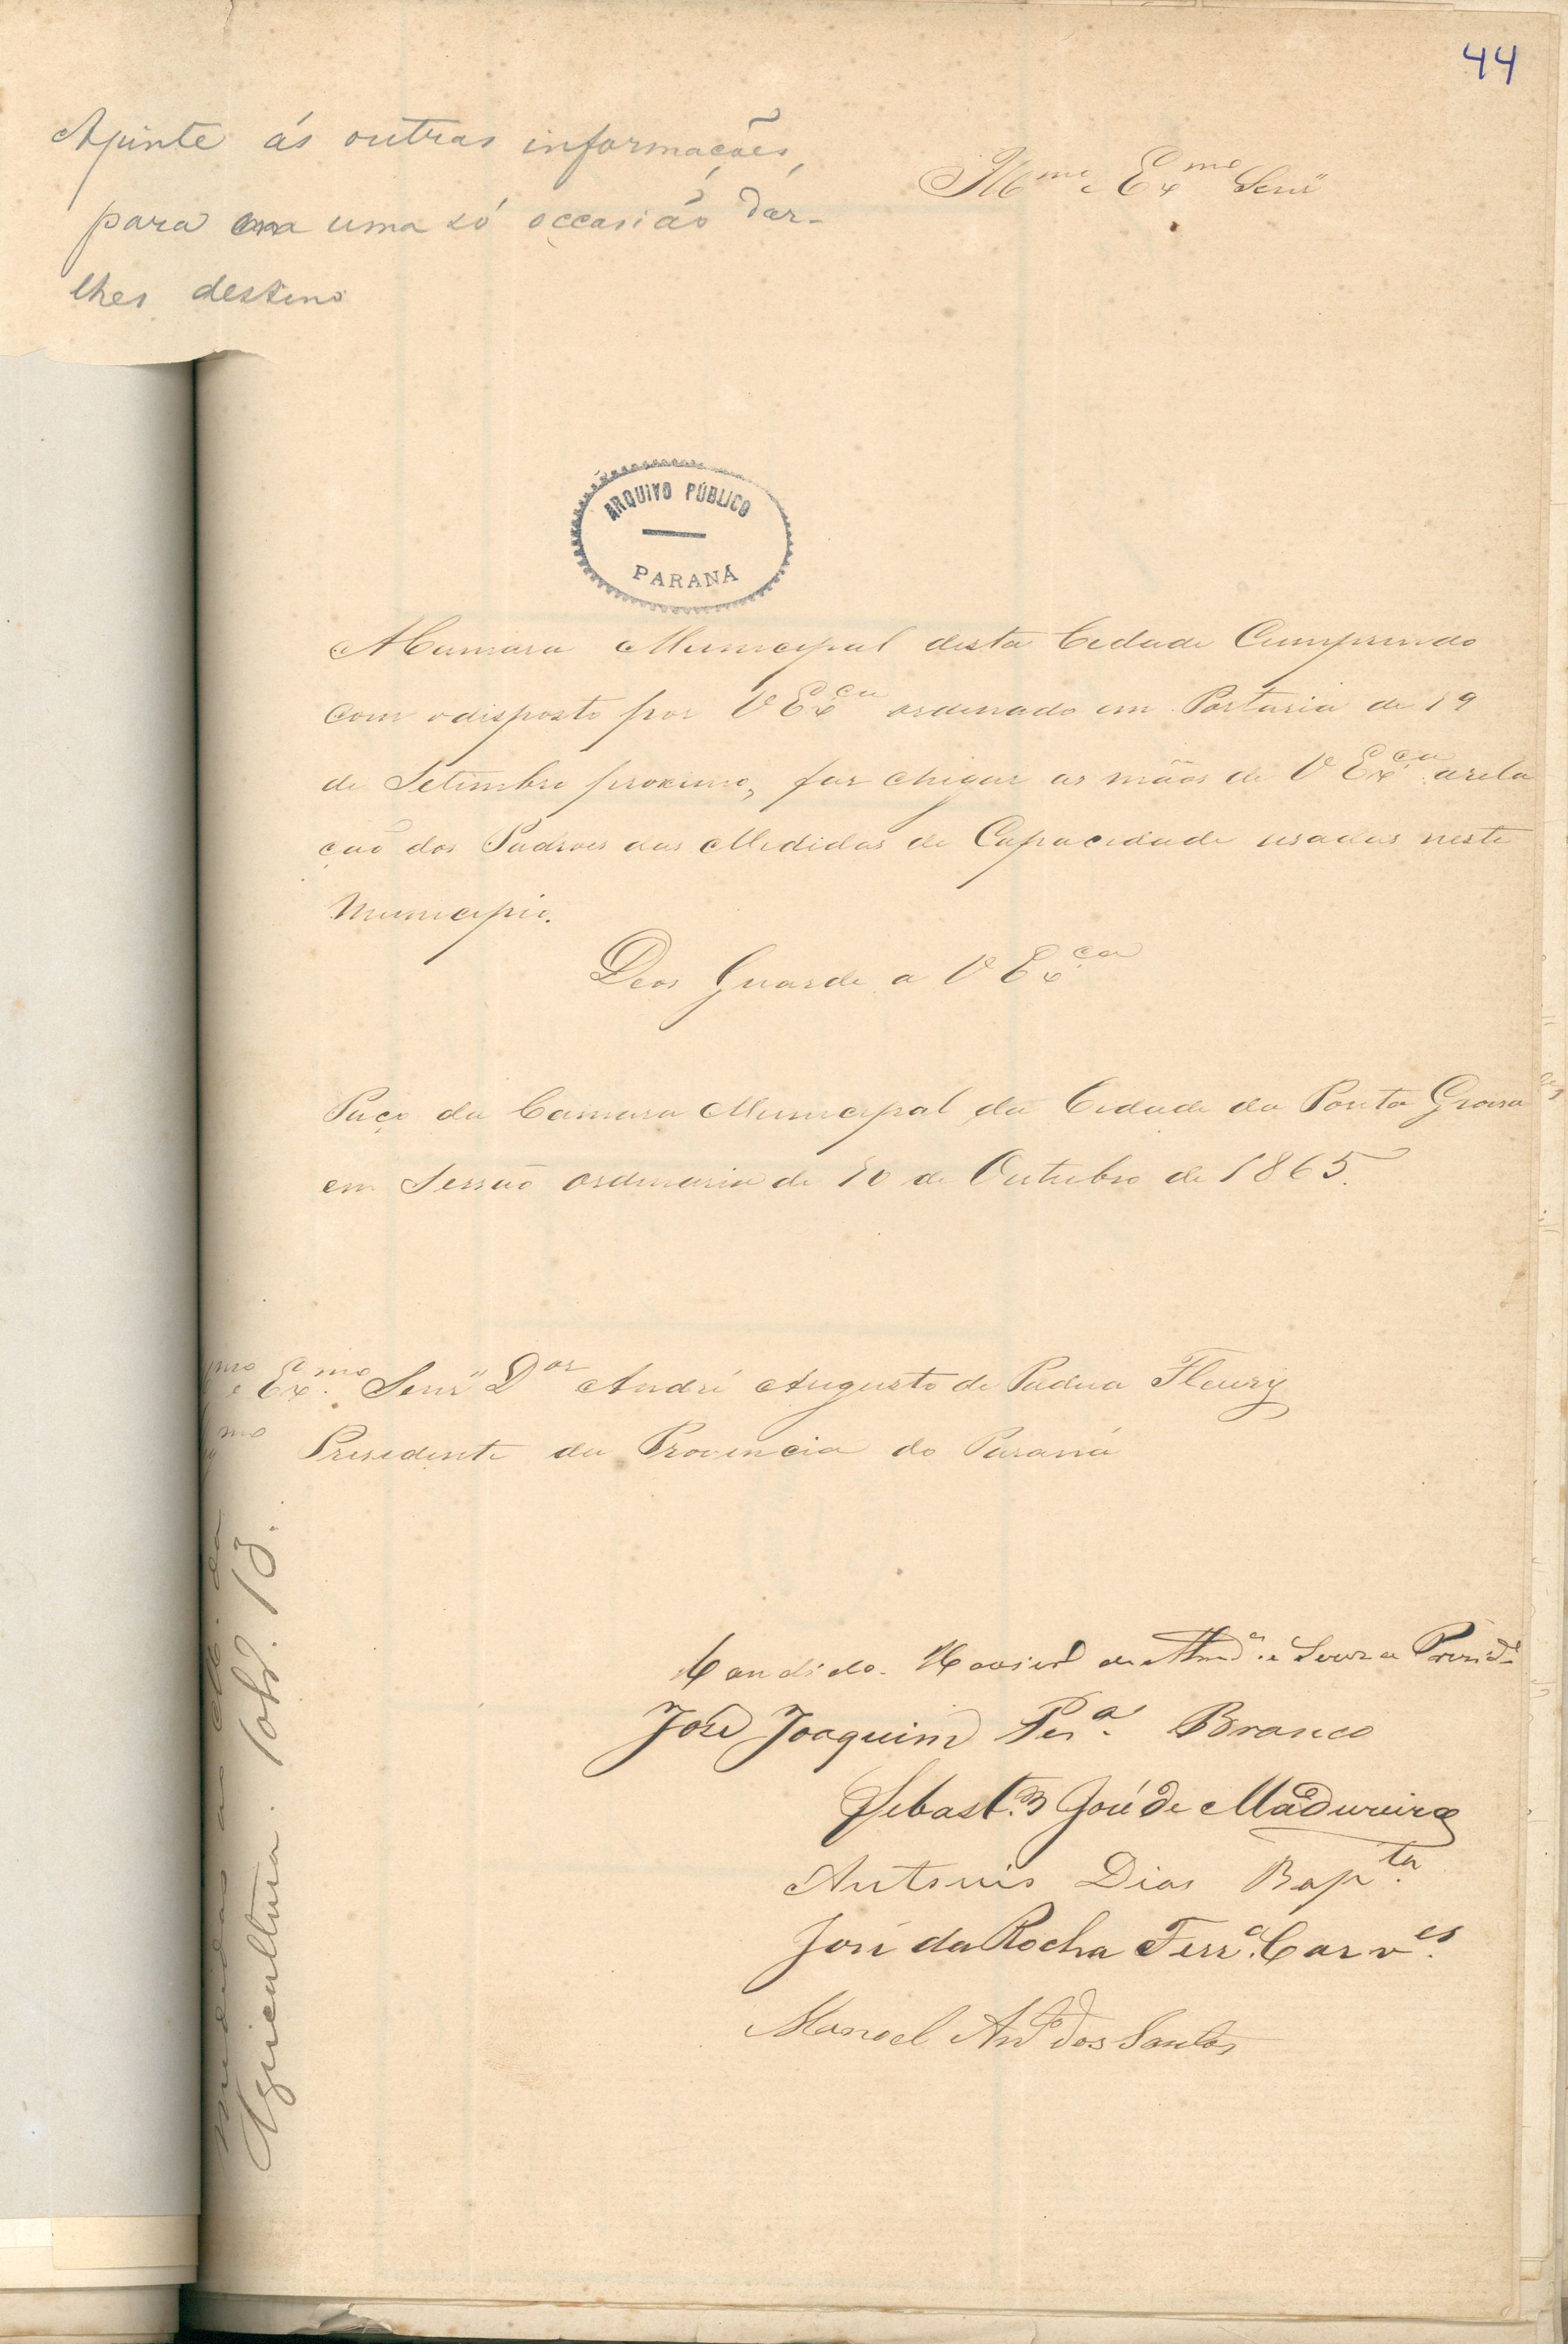 44
Ajunte ás outras informações,
para uma só occasião dar-
lhes destino
Illmo e Exmo Senr
ARQUIVO PÚBLICO
PARANÁ
ACamara Municipal desta Cidade Cumprindo
com odisposto por V Exca ordenado em Portaria de 19
de Setimbro proximo, faz chigar as mãos de V Exca arela
ção dos Padroes das Medidas de Capacidade usadas neste
Municipio.
Deos Guarde a V Exca
Paço da Camara Municipal da Cidade da Ponta Grossa
em Sessão ordinaria de 10 de Outubro de 1865.
mo e Exmo Senr Dor André Augusto de Padua Fleury
mo Presidente da Provincia do Paraná
medidas ao M. da
Agricultura. 13.
Candido Xavier de Almda e Souza Presidte
José Joaquim Pera Branco
Sebastm José de Madureira
Antonio Dias Bapta
José da Rocha Ferra Carves
Manoel Anto dos Santos